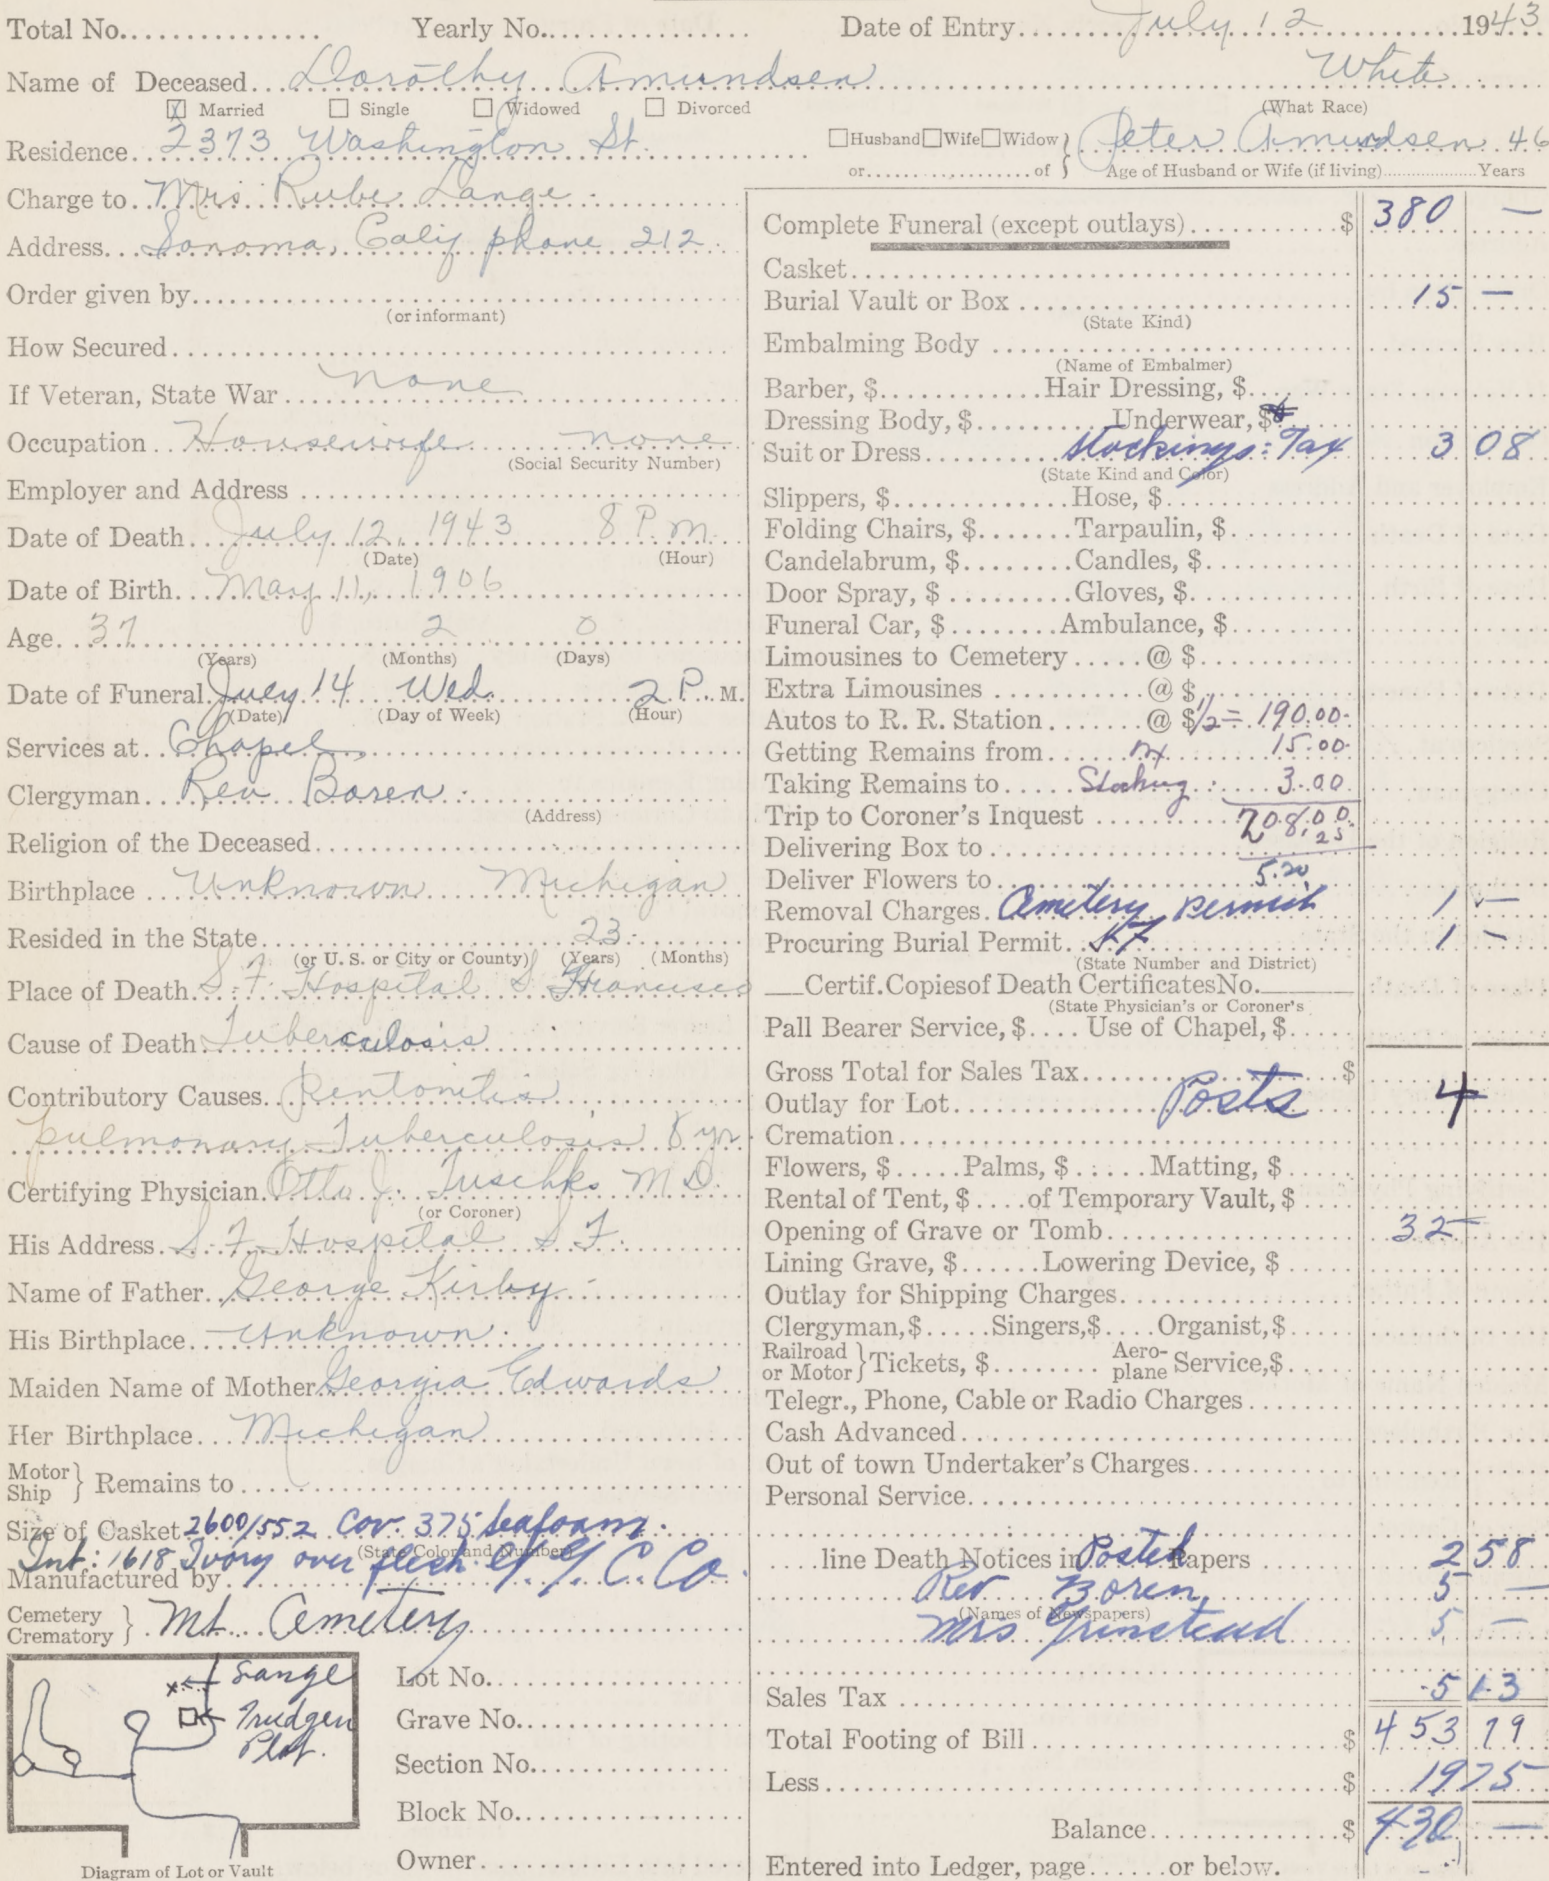 Total No................ Yearly No................ Date of Entry July 12 1943
Name of Deceased Dorothy Amundsen White
☒ Married ☐ Single ☐ Widowed ☐ Divorced (What Race)
Residence 2373 Washington St. ☐Husband ☐Wife ☐Widow } Peter Amundsen 46
or.................of } Age of Husband or Wife (if living)..........Years
Charge to Mrs Rube Lange
Address Sonoma, Calif phone 212
Order given by
(or informant)
How Secured
If Veteran, State War none
Occupation Housewife none
(Social Security Number)
Employer and Address
Date of Death July 12, 1943 8 P. M.
(Date) (Hour)
Date of Birth May 11, 1906
Age 37 2 0
(Years) (Months) (Days)
Date of Funeral July 14 Wed. 2 P. M.
(Date) (Day of Week) (Hour)
Services at Chapel
Clergyman Rev Boren
(Address)
Religion of the Deceased
Birthplace Unknown Michigan
Resided in the State 23
(or U. S. or City or County) (Years) (Months)
Place of Death S. F. Hospital S Francisco
Cause of Death Tuberculosis
Contributory Causes Peritonitis
pulmonary Tuberculosis 8 yr
Certifying Physician Otto J. M D.
(or Coroner)
His Address S. F. Hospital S F.
Name of Father George Kirby
His Birthplace Unknown
Maiden Name of Mother Georgia Edwards
Her Birthplace Michigan
Motor Ship } Remains to
Size of Casket 2600/552 Cov. 375 Seafoam
(State Color and Number)
Int: 1618 Ivory over flesh
Manufactured by C. Co.
Cemetery Crematory } Mt. Cemetery
Lange
Trudgen
Plot.
Diagram of Lot or Vault
Lot No.
Grave No.
Section No.
Block No.
Owner
Complete Funeral (except outlays) $ 380 —
Casket
Burial Vault or Box 15 —
(State Kind)
Embalming Body
(Name of Embalmer)
Barber, $ Hair Dressing, $
Dressing Body, $ Underwear, $
Suit or Dress stockings: Tax 3 08
(State Kind and Color)
Slippers, $ Hose, $
Folding Chairs, $ Tarpaulin, $
Candelabrum, $ Candles, $
Door Spray, $ Gloves, $
Funeral Car, $ Ambulance, $
Limousines to Cemetery @ $
Extra Limousines @ $
Autos to R. R. Station @ $ 1/2 = 190.00
Getting Remains from 15.00
Taking Remains to Stocking: 3.00
Trip to Coroner's Inquest 208.00
Delivering Box to 25
Deliver Flowers to 5.20
Removal Charges Cemetery permit 1 —
Procuring Burial Permit SF 1 —
(State Number and District)
Certif.Copiesof Death CertificatesNo.
(State Physician's or Coroner's
Pall Bearer Service, $ Use of Chapel, $
Gross Total for Sales Tax $
Outlay for Lot Posts 4
Cremation
Flowers, $ Palms, $ Matting, $
Rental of Tent, $ of Temporary Vault, $
Opening of Grave or Tomb 32
Lining Grave, $ Lowering Device, $
Outlay for Shipping Charges
Clergyman,$ Singers,$ Organist,$
Railroad or Motor } Tickets, $ Aero-plane Service,$
Telegr., Phone, Cable or Radio Charges
Cash Advanced
Out of town Undertaker's Charges
Personal Service
line Death Notices in Posted Papers 2 58
Rev Boren 5 —
(Names of Newspapers)
Mrs Grinstead 5 —
Sales Tax 5 13
Total Footing of Bill $ 453 79
Less $ 19 75
Balance $ 430 —
Entered into Ledger, page......or below.